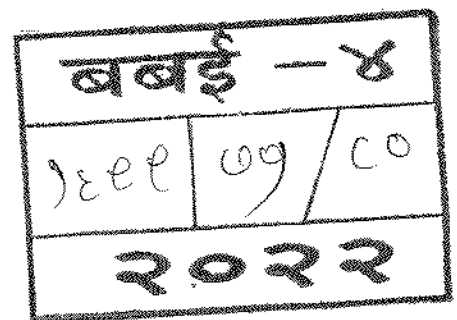 बबई - ४
१६९९ ७१/८०
२०२२